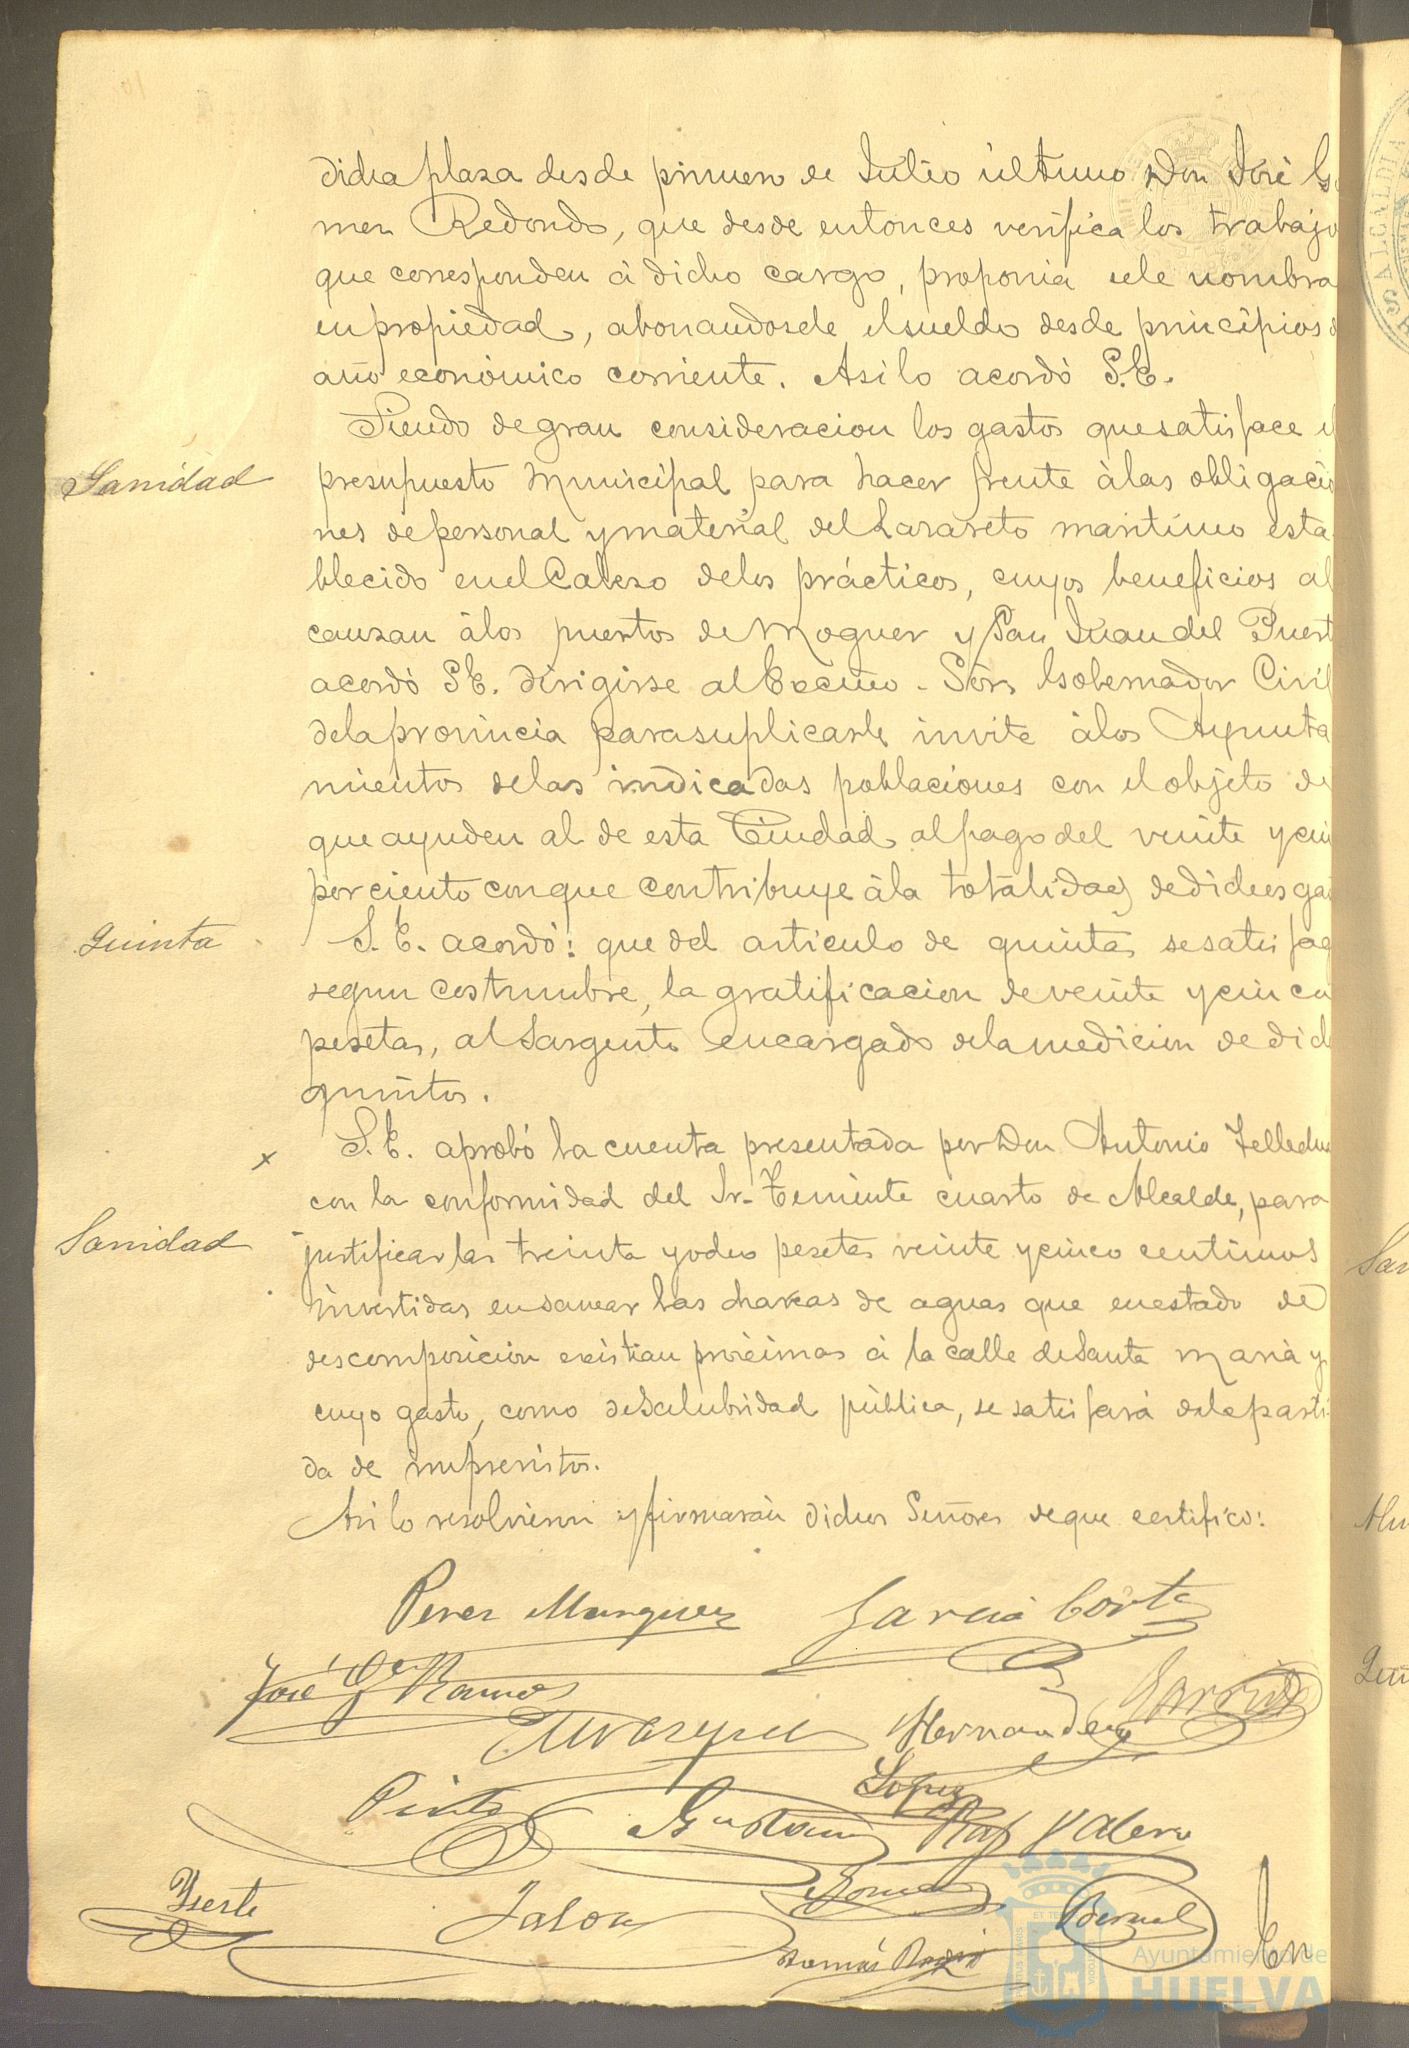 dicha plaza desde primero de Julio último Don José Go
mez Redondo, que desde entonces verifica los trabajo
que corresponden á dicho cargo, proponia sele nombra
en propiedad, abonandosele el sueldo desde principios d
año económico corriente. Asi lo acordó S.E.
Siendo de gran consideracion los gastos que satisface el
Sanidad
presupuesto Municipal para hacer frente á las obligacio
nes de personal y material del Lazareto maritimo esta
blecido en el Cabezo de los prácticos, cuyos beneficios al
canzan á los puertos de Moguer y San Juan del Puert
acordó S.E. dirigirse al Excmo. Sor. Gobernador Civil
de la provincia para suplicarle invite á los Ayunta
mientos de las indicadas poblaciones con el objeto de
que ayuden al de esta Ciudad al pago del veinte y cin
por ciento con que contribuye á la totalidad de dichos ga
Quinta
S.E. acordó: que del articulo de quintas se satisfag
segun costumbre, la gratificacion de veinte y cinco
pesetas, al Sargento encargado de la medicion de dich
quintos.
x
S.E. aprobó la cuenta presentada por Don Antonio
con la conformidad del Sr. Teniente cuarto de Alcalde, para
Sanidad
justificar las treinta y dos pesetas veinte y cinco centimos
invertidas en sanear las charcas de aguas que en estado de
descomposicion existian próximas á la calle de Santa Maria y
cuyo gasto, como de salubridad pública, se satisfará de la parti
da de imprevistos.
Asi lo resolvieron y firmarán dichos Señores de que certifico:
Perez Marquez
Garcia Cortes
José Ga Ramos
M Vazquez
Hernandez
Garrido
Lopez
Pinto
Raf Valero
Yserte
Jalon
Gomez
Bernal
Tomás
En
SALCALDIA
San
Quin
Ayuntamiento de
HUELVA